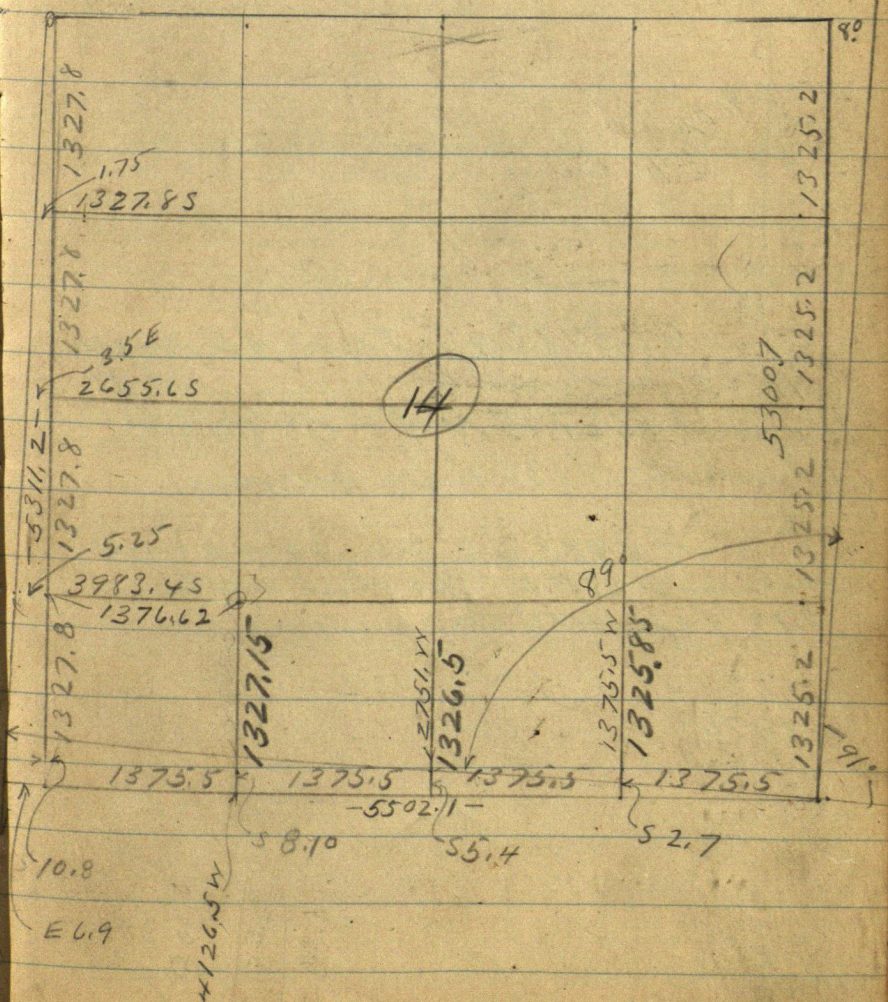 8°
1327.8
1325.2
1.75
1327.8 S
1327.8
1325.2
3.5 E
2655.6 S
14
5300.7
-5311.2-
1327.8
1325.2
5.25
89°
3983.4 S
1376.62
1327.8
1327.15
2751. W
1326.5
1375.5 W
1325.85
1325.2
91°
1375.5
1375.5
1375.5
1375.5
-5502.1-
S 8.10
S 5.4
S 2.7
S 10.8
E 6.9
4126.5 W